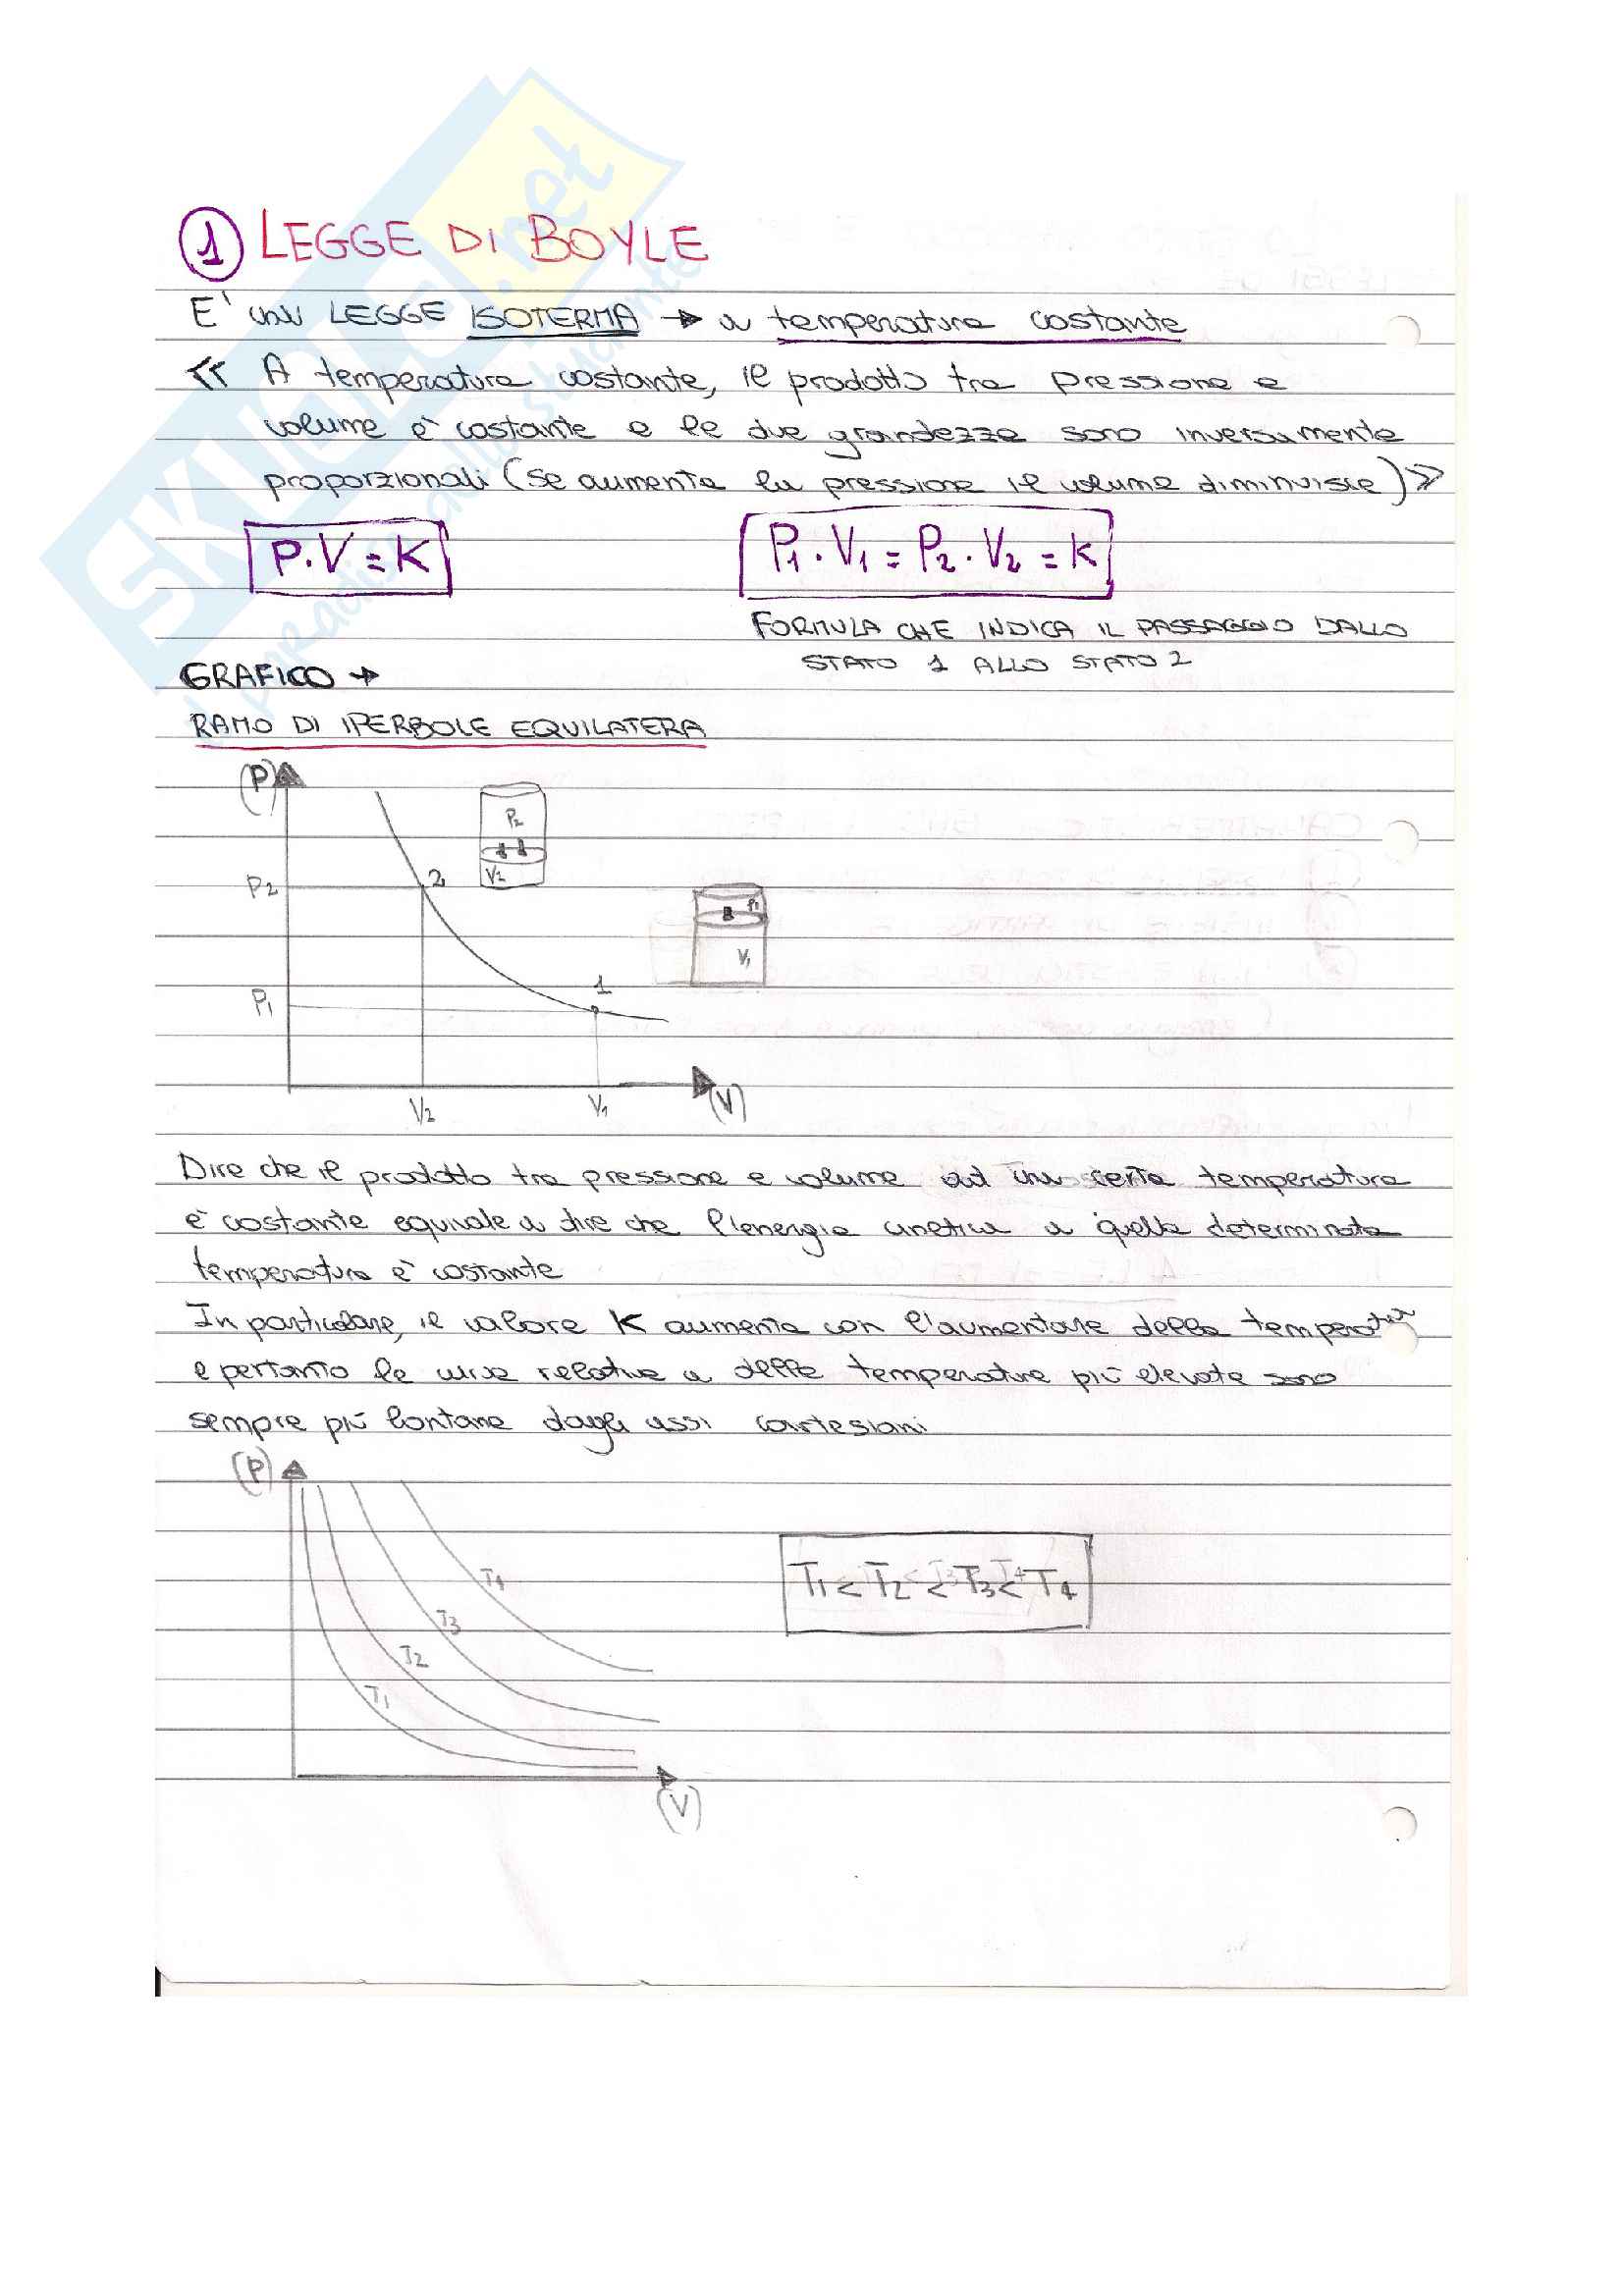 1 LEGGE DI BOYLE
E' una LEGGE ISOTERMA → a temperatura costante
« A temperatura costante, il prodotto tra pressione e
volume è costante e le due grandezze sono inversamente
proporzionali (se aumenta la pressione il volume diminuisce) »
P·V=K
P1·V1=P2·V2=K
FORMULA CHE INDICA IL PASSAGGIO DALLO
STATO 1 ALLO STATO 2
GRAFICO →
RAMO DI IPERBOLE EQUILATERA
(P)
P2
V2
P2
2
P1
V1
P1
1
V2
V1
(V)
Dire che il prodotto tra pressione e volume ad una certa temperatura
è costante equivale a dire che l'energia cinetica a quella determinata
temperatura è costante
In particolare, il valore K aumenta con l'aumentare della temperatura
e pertanto le curve relative a delle temperature più elevate sono
sempre più lontane dagli assi cartesiani
(P)
T4
T3
T2
T1
T1<T2<T3<T4
(V)
SKUOLA.net